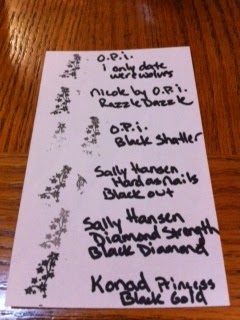 O.P.i.
i only date
werewolves
Nicole by O.P.i.
Razzle Dazzle
O.P.i.
Black Shatter
Sally Hansen
Hard as Nails
Black out
Sally Hansen
Diamond Strength
Black Diamond
Konad Princess
Black Gold